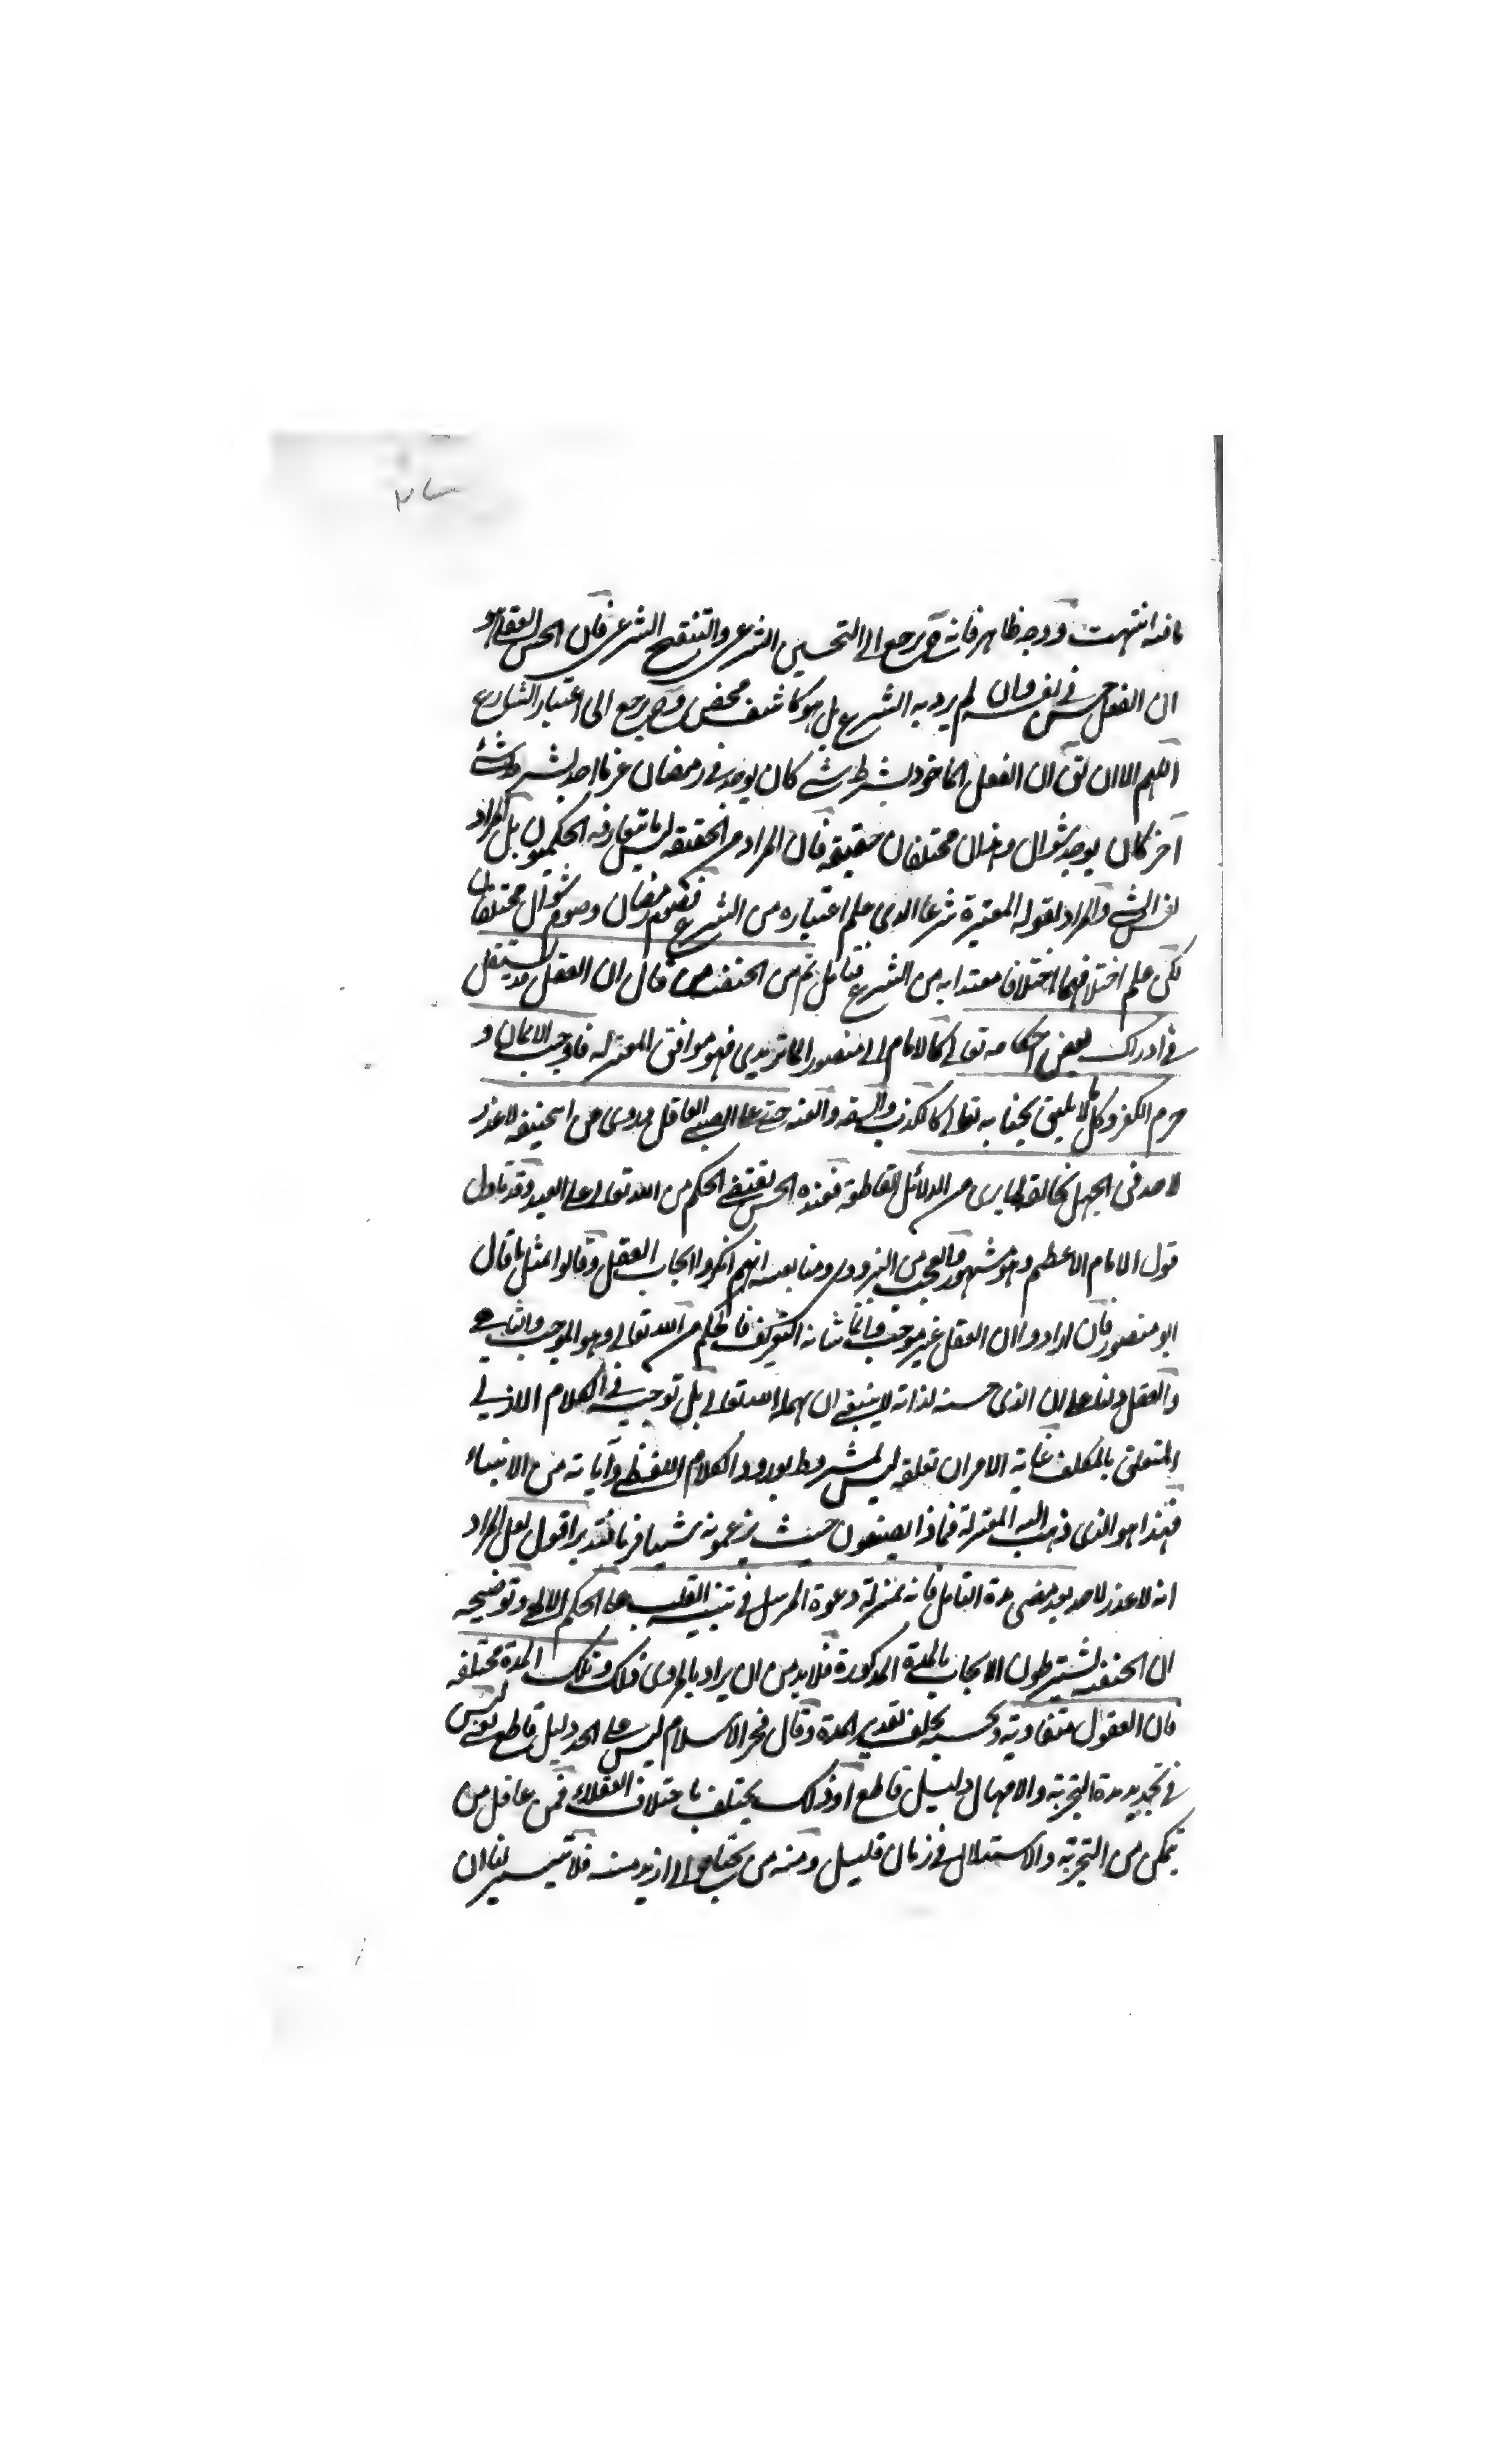 فانه انتهت ووجه ظاهر فانه ح يرجع الى التحسين الشرعي والتقبيح الشرعي فان الحسن العقلي هو
ان الفعل حسن في نفسه وان لم يرد به الشرع بل هو كاشف محض وح يرجع الى اعتبار الشارع
اللهم الا ان يق ان الفعل الماخوذ بشرط شے كان يوجد في رمضان غير ما اخذ بشرط شے
آخر كان يوجد بشوال وهذان مختلفان حقيقة فان المراد من الحقيقة ليس ما يتعارفه الحكميون بل المراد
نفس الشے والمراد بقوله المعتبرة شرعا الذي علم اعتباره من الشرع فصوم رمضان وصوم شوال مختلفان
لكن علم اختلافهما اختلافا معتدا به من الشرع فتامل ثم من الحنفية من قال ان العقل قد يستقل
في ادراك بعض احكامه تعالى كالامام ابي منصور الماتريدي فهو موافق المعتزلة فاوجب الايمان و
حرم الكفر وكل ما لا يليق بجنابه تعالى كالكذب والسفه والعته حتى على الصبي العاقل وروى عن ابيحنيفة لا عذر
لاحد في الجهل بخالقه لما يرى من الدلائل القاطعة فعنده الحسن يقتضي الحكم من الله تعالى على العبد وقد تاول
قول الامام الاعظم وهو مشهور والعجب من البزدوي ومتابعيه انهم انكروا ايجاب العقل وقالوا مثل ما قال
ابو منصور فان ارادوا ان العقل غير موجب وانما شانه الكشف فالحكم من الله تعالى وهو الموجب والشارع
والعقل دلنا على ان الذي حسنه لذاته لا ينبغي ان يهمله الله تعالى بل توجبه في الكلام الازلي
المتعلق بالمكلف غاية الامر ان تعلقه ليس بمشروط بورود الكلام اللفظي وآياته من الانبياء
فهذا هو الذي ذهب اليه المعتزلة فماذا يصنعون حيث يزعمونه شيئا فريا فتدبر اقول لعل المراد
انه لا عذر لاحد بعد مضي مدة التامل فانه بمنزلة دعوة الرسل في تنبيه القلب على الحكم الالهي وتوضيحه
ان الحنفية يشترطون الايجاب بالمدة المذكورة فلا بد من ان يراد بالمروى ذلك وتلك المدة مختلفة
فان العقول متفاوتة وبحسبه يختلف تقدير المدة وقال فخر الاسلام ليس على الحد دليل قاطع يعني ليس
في تحديد مدة التجربة والامهال دليل قاطع اذ ذلك يختلف باختلاف العقلاء فمن عاقل من
يتمكن من التجربة والاستدلال في زمان قليل ومنه من يحتاج الى ازيد منه فلا تيسير لنا ان